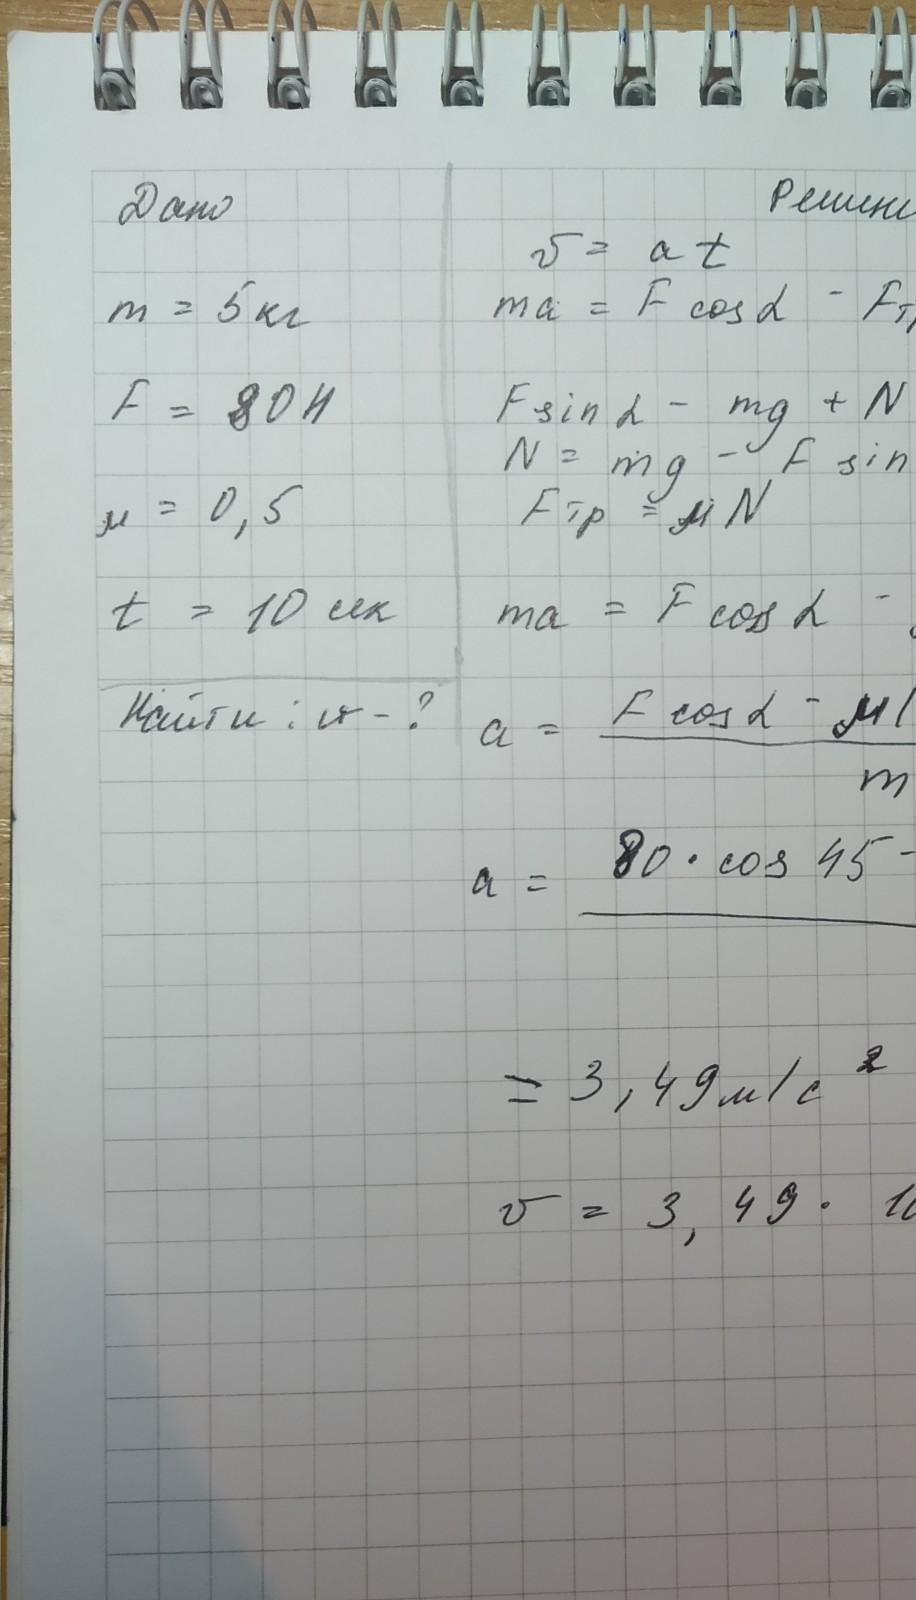 Дано
m = 5 кг
F = 80 Н
μ = 0,5
t = 10 сек
Найти: v - ?
Решени
v = a t
ma = F cos α - Fтр
F sin α - mg + N
N = mg - F sin
Fтр = μN
ma = F cos α -
a = F cos α - μ(
m
a = 80 · cos 45 -
= 3,49 м/с²
v = 3,49 · 10